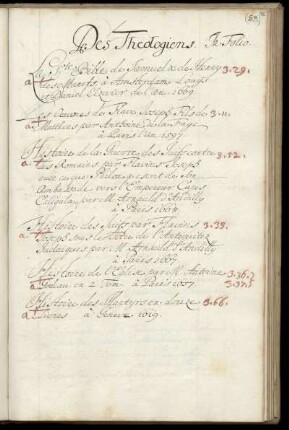 Des Theologiens. In Folio.
La Ste. Bible de Samuel & de Henry 3.29.
des Marets, à Amsterdam Louys
et Daniel Elzevier de l'an 1669.
Les Oeuvres de Flave Joseph Fils de 3.11.
Matthias par Antoine de la Faye
à Paris l'an 1597.
Histoire de la Guerre des Juifs contre 3.32.
les Romains par Flavius Joseph
avec ce que Philon, a escrit de Son
Ambassade vers l'Empereur Cajus
Caligula, par M. Arnauld d'Andilly
à Paris
Histoire des Juifs par Flavius 3.33.
Joseph sous le titre de l'Antiquitez
Judaiques par M. Arnauld d'Andilly
à Paris 1667
Histoire de l'Eglise, par M. Antoine 3.36.
Godeau en 2 Tom. à Paris 1657. 3.37.
Histoire des Martyrs en douze 3.66.
Livres à Geneve 1619.